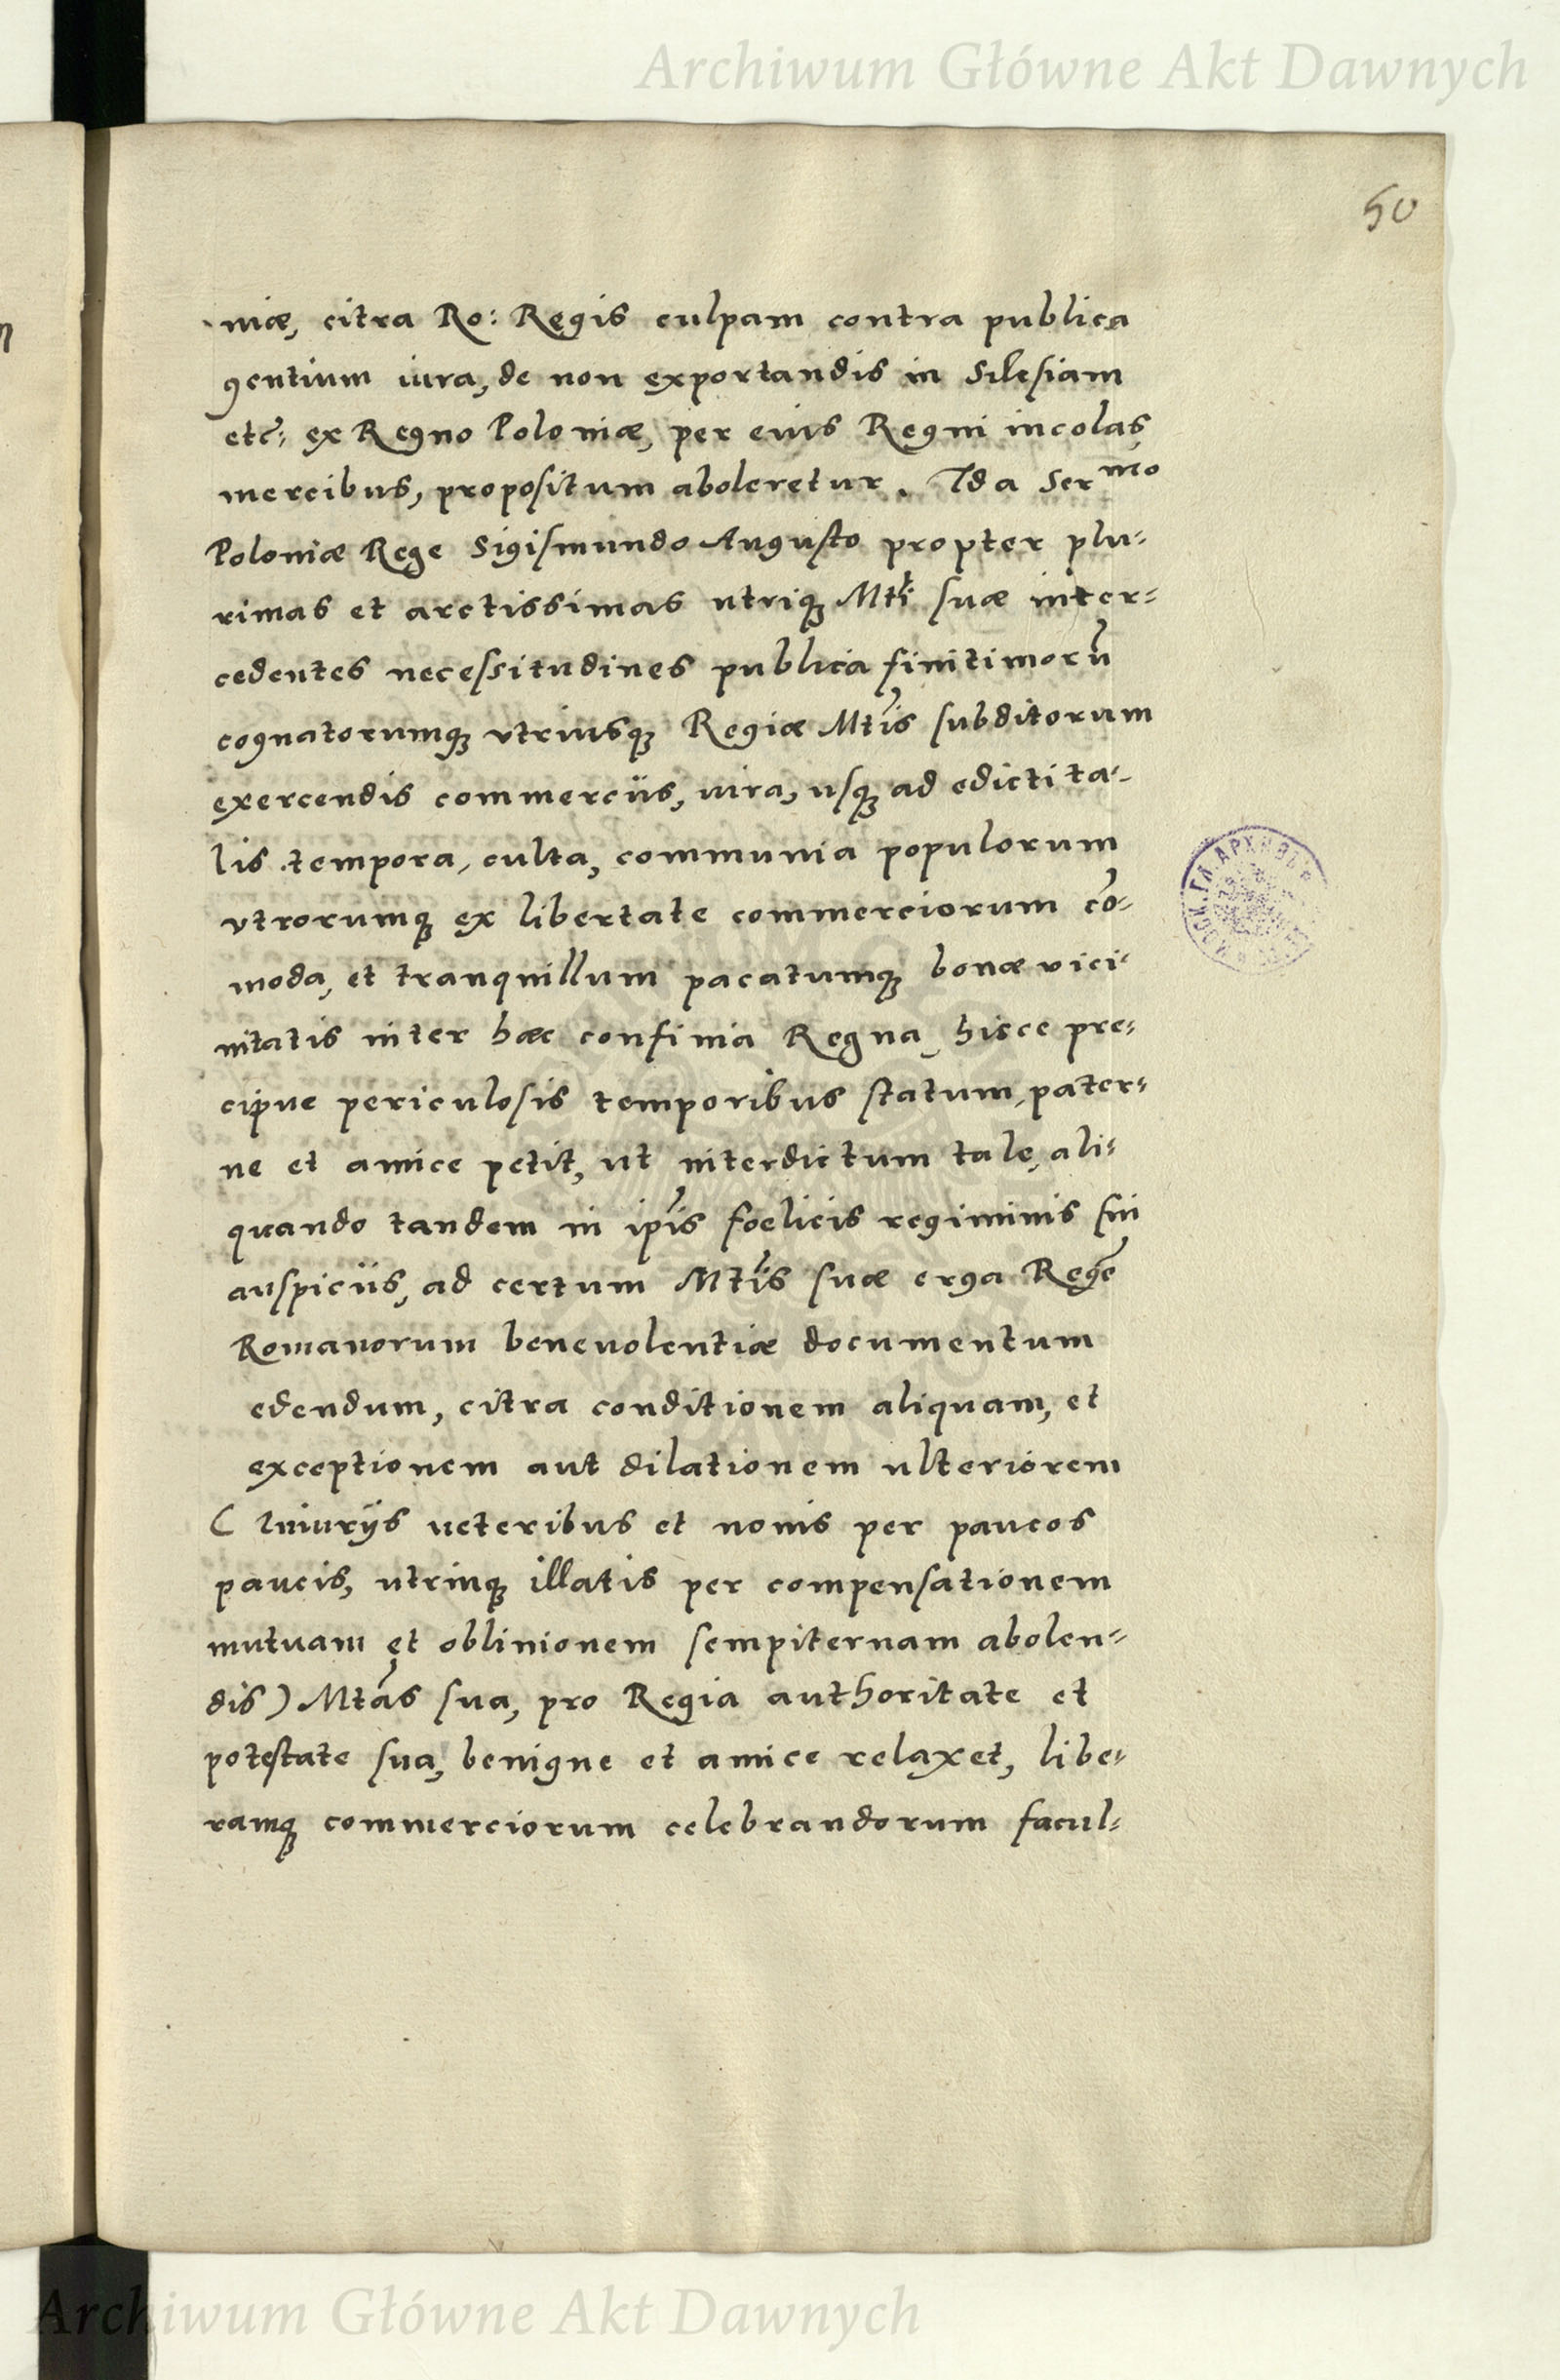 Archiwum Główne Akt Dawnych
50
niæ, citra Ro: Regis culpam contra publica
gentium iura, de non exportandis in Silesiam
etc̃: ex Regno Poloniæ, per eius Regni incolas
mercibus, propositum aboleretur. Id a Ser^mo
Poloniæ Rege Sigismundo Augusto propter plu-
rimas et arctissimas utriq Mti suæ inter-
cedentes necessitudines publica finitimorũ
cognatorumq vtriusq Regiæ Mtis subditorum
exercendis commercijs, iura, usq ad edicti ta-
lis tempora, culta, communia populorum
vtrorumq ex libertate commerciorum cõ-
moda, et tranquillum pacatumq bonæ vici-
nitatis inter hæc confinia Regna, hisce pre-
cipue periculosis temporibus statum, pater-
ne et amice petit, ut interdictum tale, ali-
quando tandem in ip̃is foelicis regiminis sui
auspicijs, ad certum Mtis suæ erga Regẽ
Romanorum beneuolentiæ documentum
edendum, citra conditionem aliquam, et
exceptionem aut dilationem ulteriorem
( Iniurijs ueteribus et nouis per paucos
paucis, utrinq illatis per compensationem
mutuam et obliuionem sempiternam abolen-
dis ) Mtas sua, pro Regia authoritate et
potestate sua, benigne et amice relaxet, libe-
ramq commerciorum celebrandorum facul-
Archiwum Główne Akt Dawnych